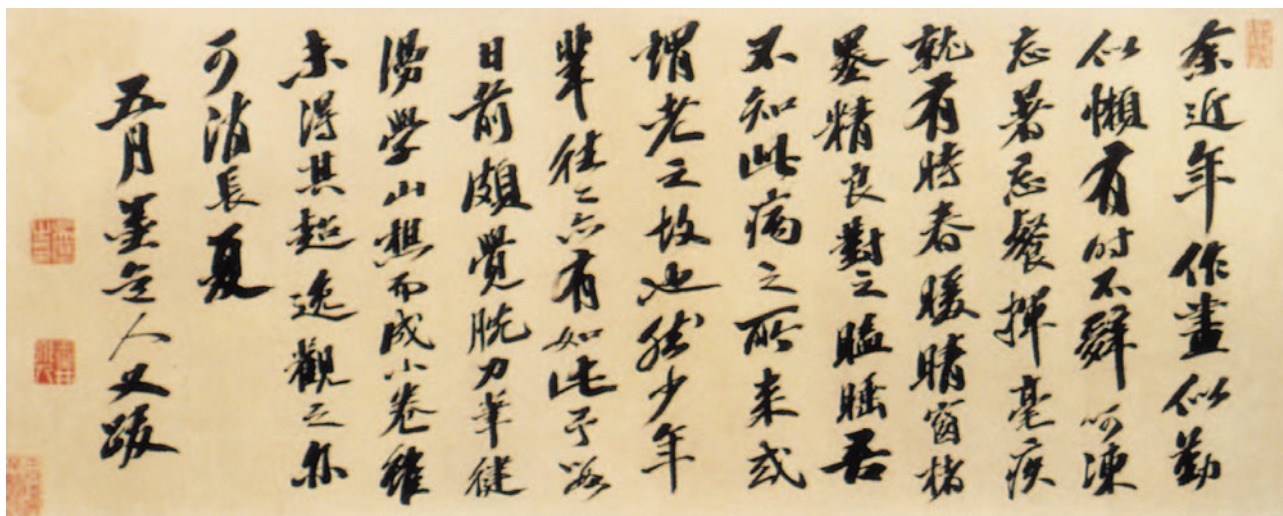 余近年作畫似勤
似懶有时不辭呵凍
忘暑忘餐揮毫疾
就有時春暖晴窗楮
墨精良對之瞌睡吾
不知此病之所来或
謂老之故也然少年
輩往〻亦有如此予
日前頗覺腕力筆健
漫學山樵而成小卷雖
未得其超逸觀之亦
可消長夏
五月墨道人又跋